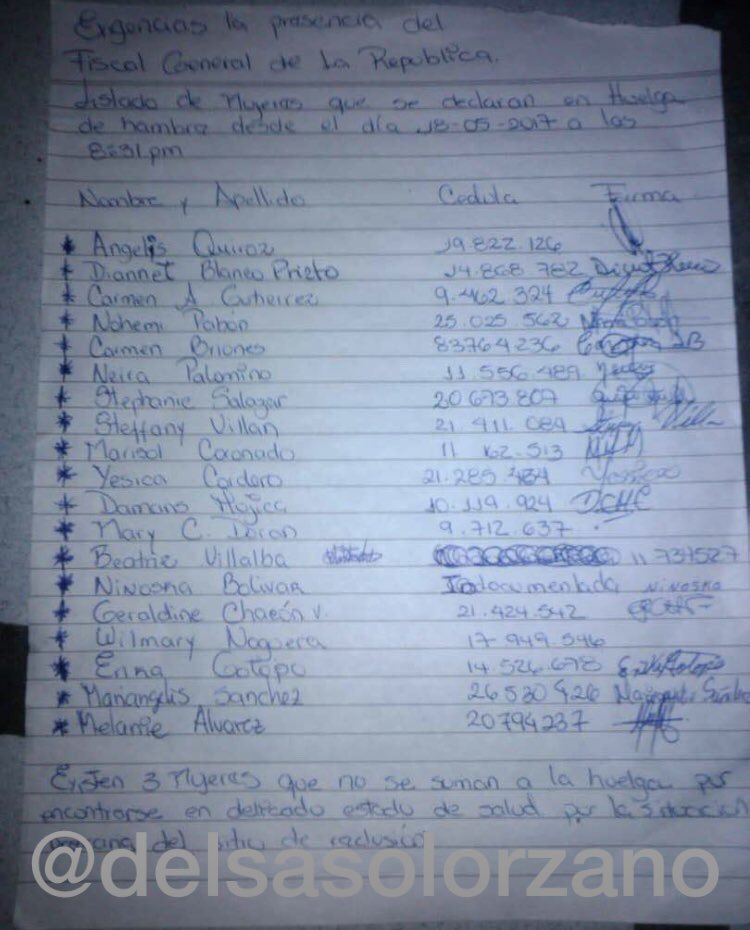 Exgencias la presencia del
Fiscal General de La Republica.
Listado de Mujeres que se declaran en Huelga
de hambre desde el día 18-05-2017 a las
8:31pm
Nombre y Apellido Cedula Firma
* Angelis Quiroz 19.822.126
* Diannet Blanco Prieto 14.868 782
* Carmen A Gutierrez 9.462 324
* Nohemi Pabón 25.025.562
* Carmen Briones 83764236
* Neira Palomino 11 556 489
* Stephanie Salazar 20 673 807
* Steffany Villan 21.411.084
* Marisol Coronado 11 162.513
* Yesica Cordero 21.285.484
* Damaris Mujica 10.119.924
* Mary C. Doran 9.712.637
* Beatriz Villalba 11 737527
* Ninosna Bolivar Indocumentada
* Geraldine Chacón V. 21.424.542
* Wilmary Noguera 17 949.546
* Erika Gotopo 14.526.678
* Mariangelis Sanchez 26 530 426
* Melanie Alvarez 20794237
Existen 3 Mujeres que no se suman a la huelga por
encontrarse en delicado estado de salud por la situacion
del sitio de reclusión
@delsasolorzano